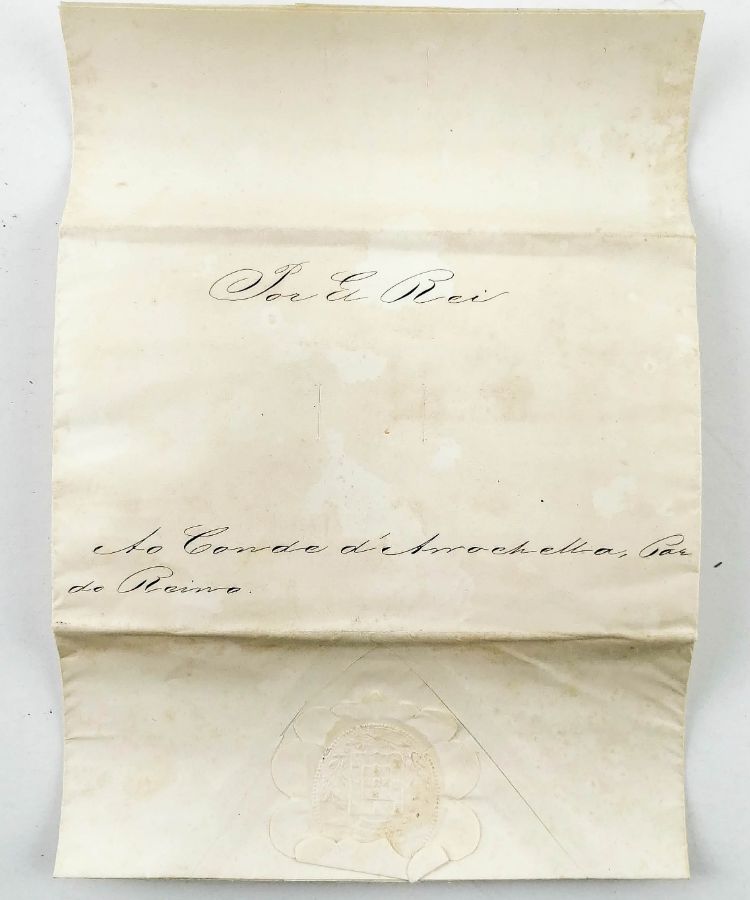 Por El Rei
Ao Conde d'Arrochella, Par
do Reino.